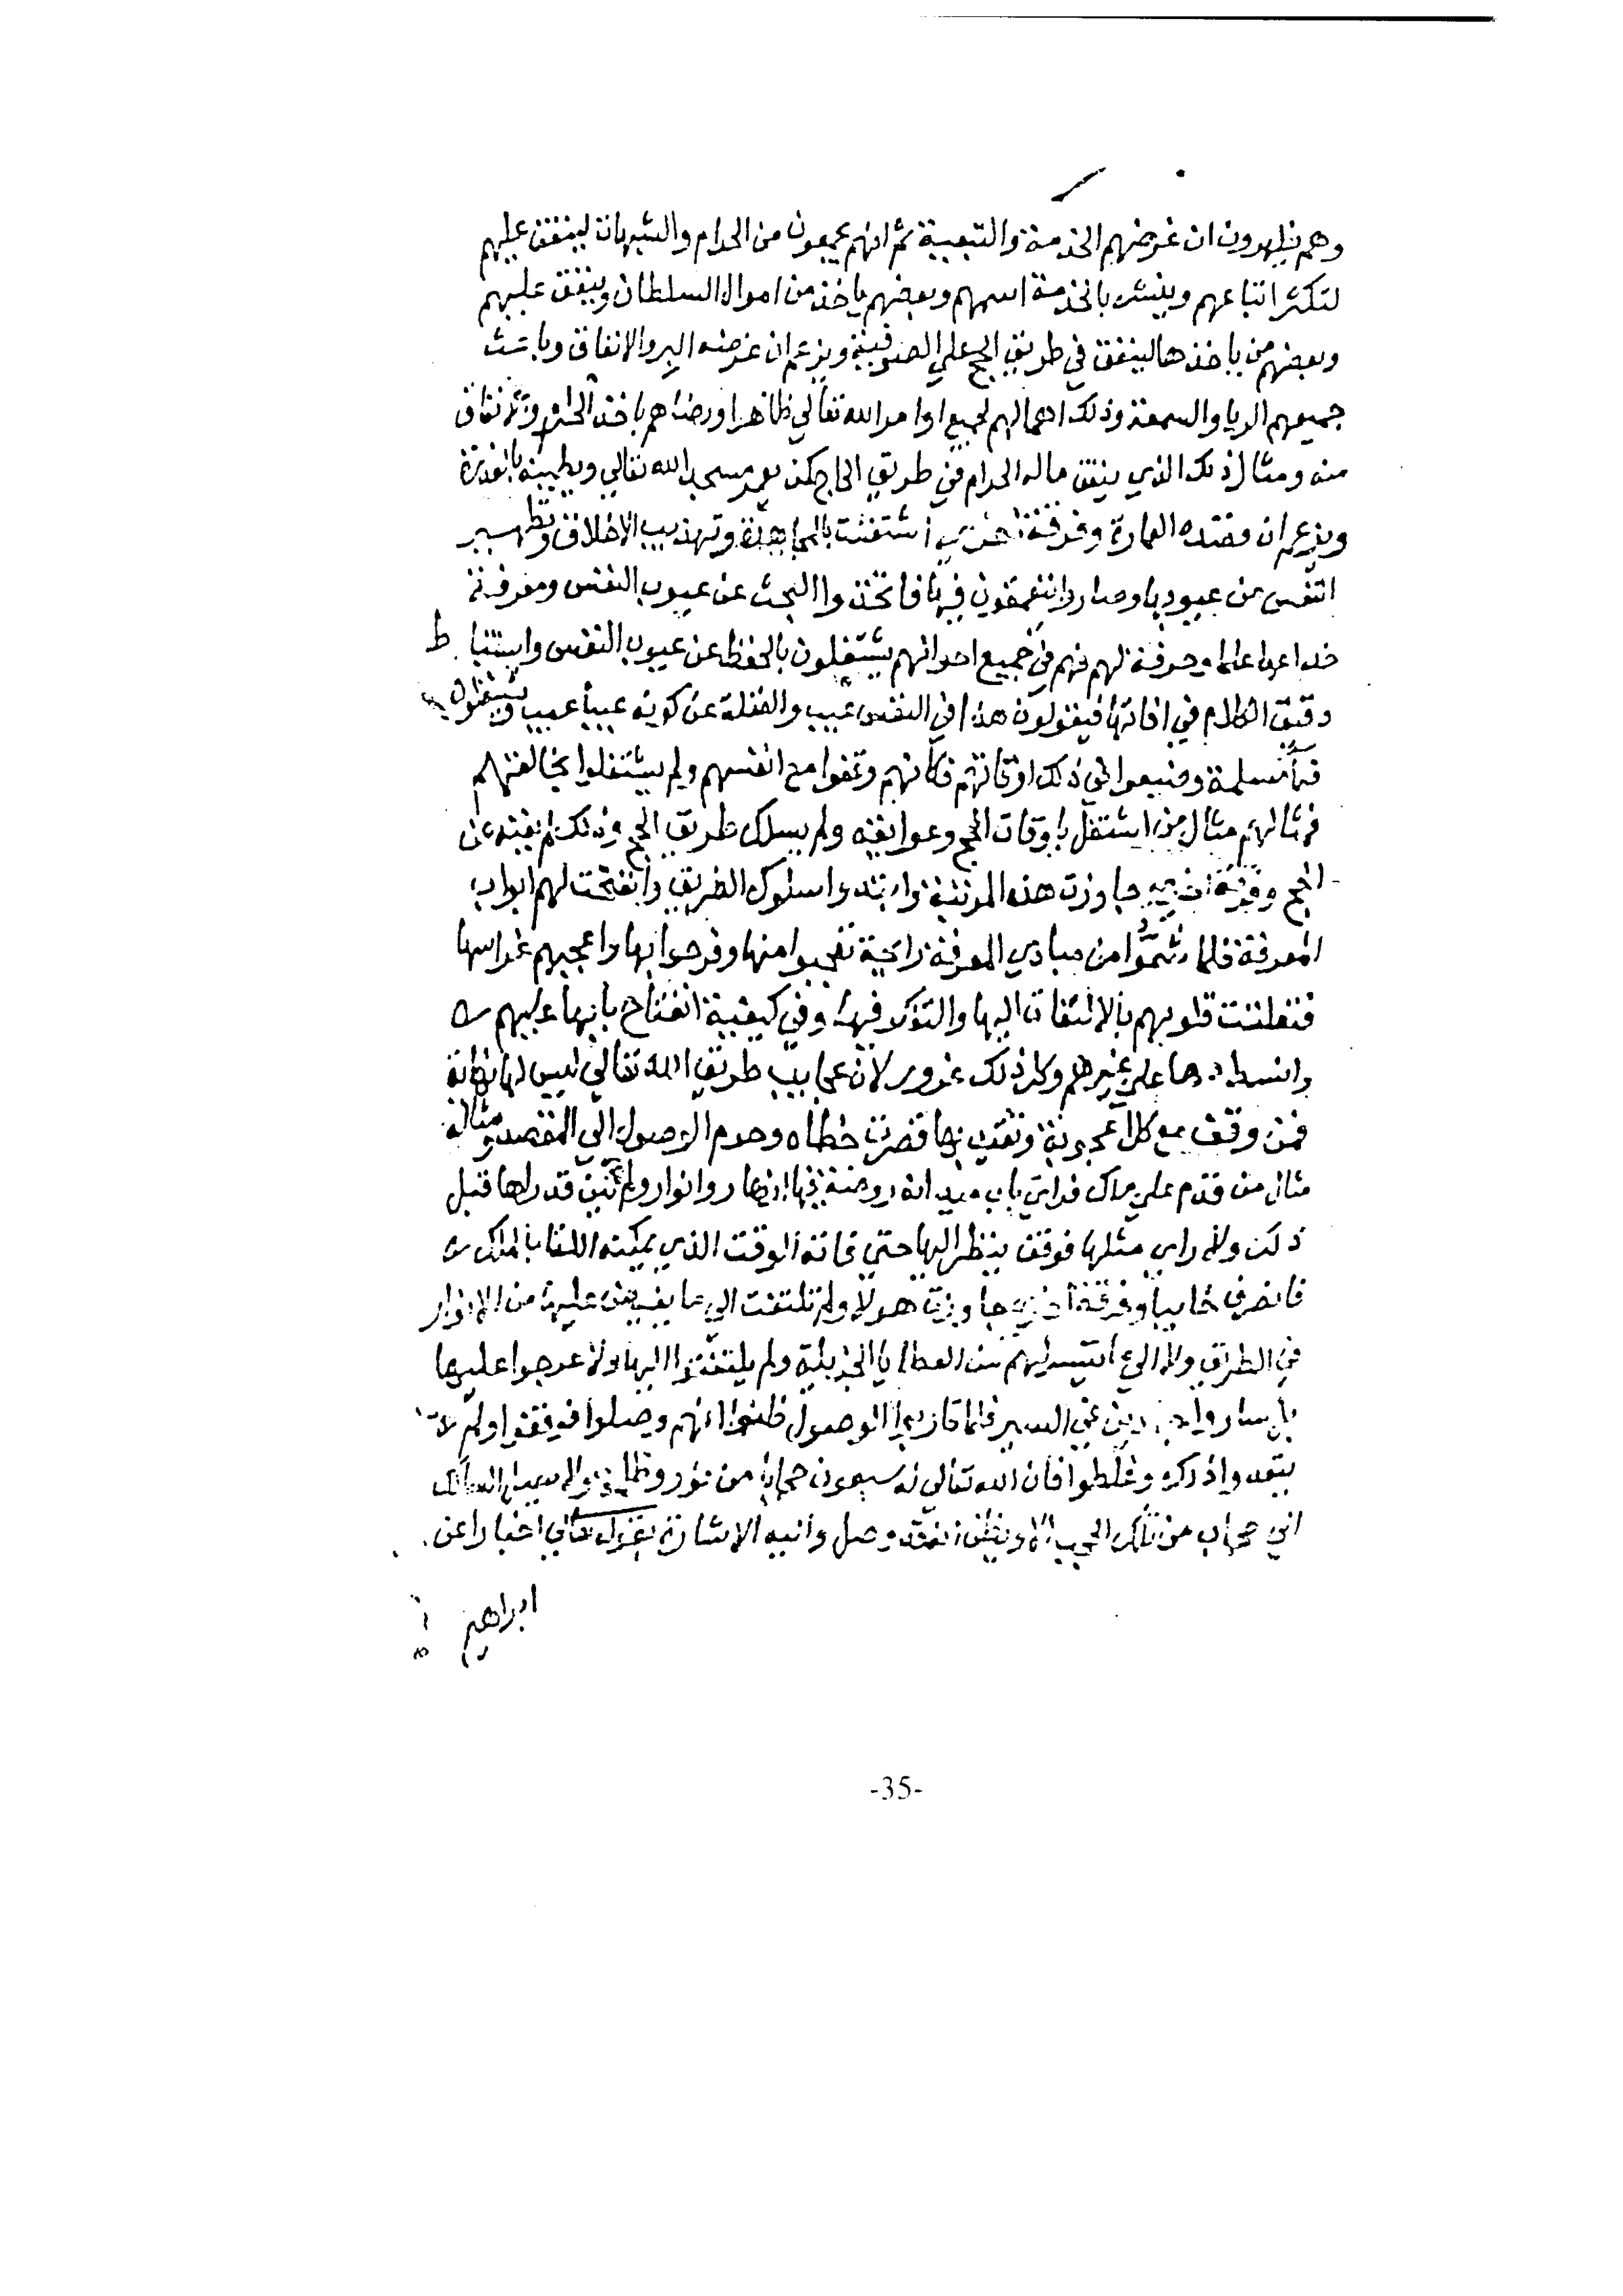 وهم يظهرون ان غرضهم الخدمة والتبعية ثم انهم يجمعون من الحرام والشبهات لينفق عليهم
لتكثر اتباعهم وينشر بالخدمة اسمهم وبعضهم ياخذ من اموال السلطان وينفق عليهم
وبعضهم من ياخذها لينفق في طريق الحج علي الصوفية ويزعم ان غرضه البر والانفاق وباعث
جميعهم الريا والسمعة وذلك اهمالهم لجميع اوامر الله تعالي ظاهرا ورضاهم باخذ الحرام والانفاق
منه ومثال ذلك الذي ينفق ماله الحرام في طريق الحاج كمن يعمر مسجد الله تعالي ويطينه بالعذرة
ويزعم ان قصده العمارة وفرقة اخري اشتغلت بالمجاهدة وتهذيب الاخلاق وتطهير
النفس من عيوبها وصاروا يتعمقون فيها فاتخذوا البحث عن عيوب النفس ومعرفة
خداعها علما وحرفة لهم فهم في جميع احوالهم يشتغلون بالحفظ عن عيوب النفس واستنباط
دقيق الكلام في افاتها فيقولون هذا في النفس عيب والغفلة عن كونه عيبا عيب
وضيعوا في ذلك اوقاتهم فكانهم وقفوا مع انفسهم ولم يشتغلوا بخالقهم
فمثالهم مثال من اشتغل باوقات الحج وعوايقه ولم يسلك طريق الحج وذلك لم يغنه عن
الحج وفرقة اخري جاوزت هذه المرتبة وابتدوا سلوك الطريق وانفتحت لهم ابواب
المعرفة فلما شموا من مبادي المعرفة رايحة تعجبوا منها وفرحوا بها واعجبهم غراسها
فتعلقت قلوبهم بالالتفات اليها والتفكر فيها وفي كيفية انفتاح بابها عليهم
وانسدادها علي غيرهم وكل ذلك غرور لان عجايب طريق الله تعالي ليس لها نهاية
فمن وقف مع كل اعجوبة وتقيد بها قصرت خطاه وحرم الوصول الي المقصد ومثاله
مثال من قدم علي ملك فراي باب ميدانه روضة فيها ازهار وانوار ولم يكن قد راها قبل
ذلك ولا راي مثلها فوقف ينظر اليها حتي فاته الوقت الذي يمكنه اللقا بالملك
فانصرف خايبا وفرقة اخري جاوزت هولا ولم تلتفت الي ما يفيض عليها من الانوار
في الطريق ولا الي ما تيسر لهم من العطايا الجزيلة ولم يلتفتوا اليها ولا عرجوا عليها
بل ساروا جادين في السير فلما قاربوا الوصول ظنوا انهم وصلوا فوقفوا ولم
يتعدوا ذلك وغلطوا فان الله تعالي له سبعون حجابا من نور وظلمة ولا يصل السالك
الي حجاب من تلك الحجب الا ويظن انه قد وصل واليه الاشارة بقول تعالي اخبارا عن
ابراهيم
-35-